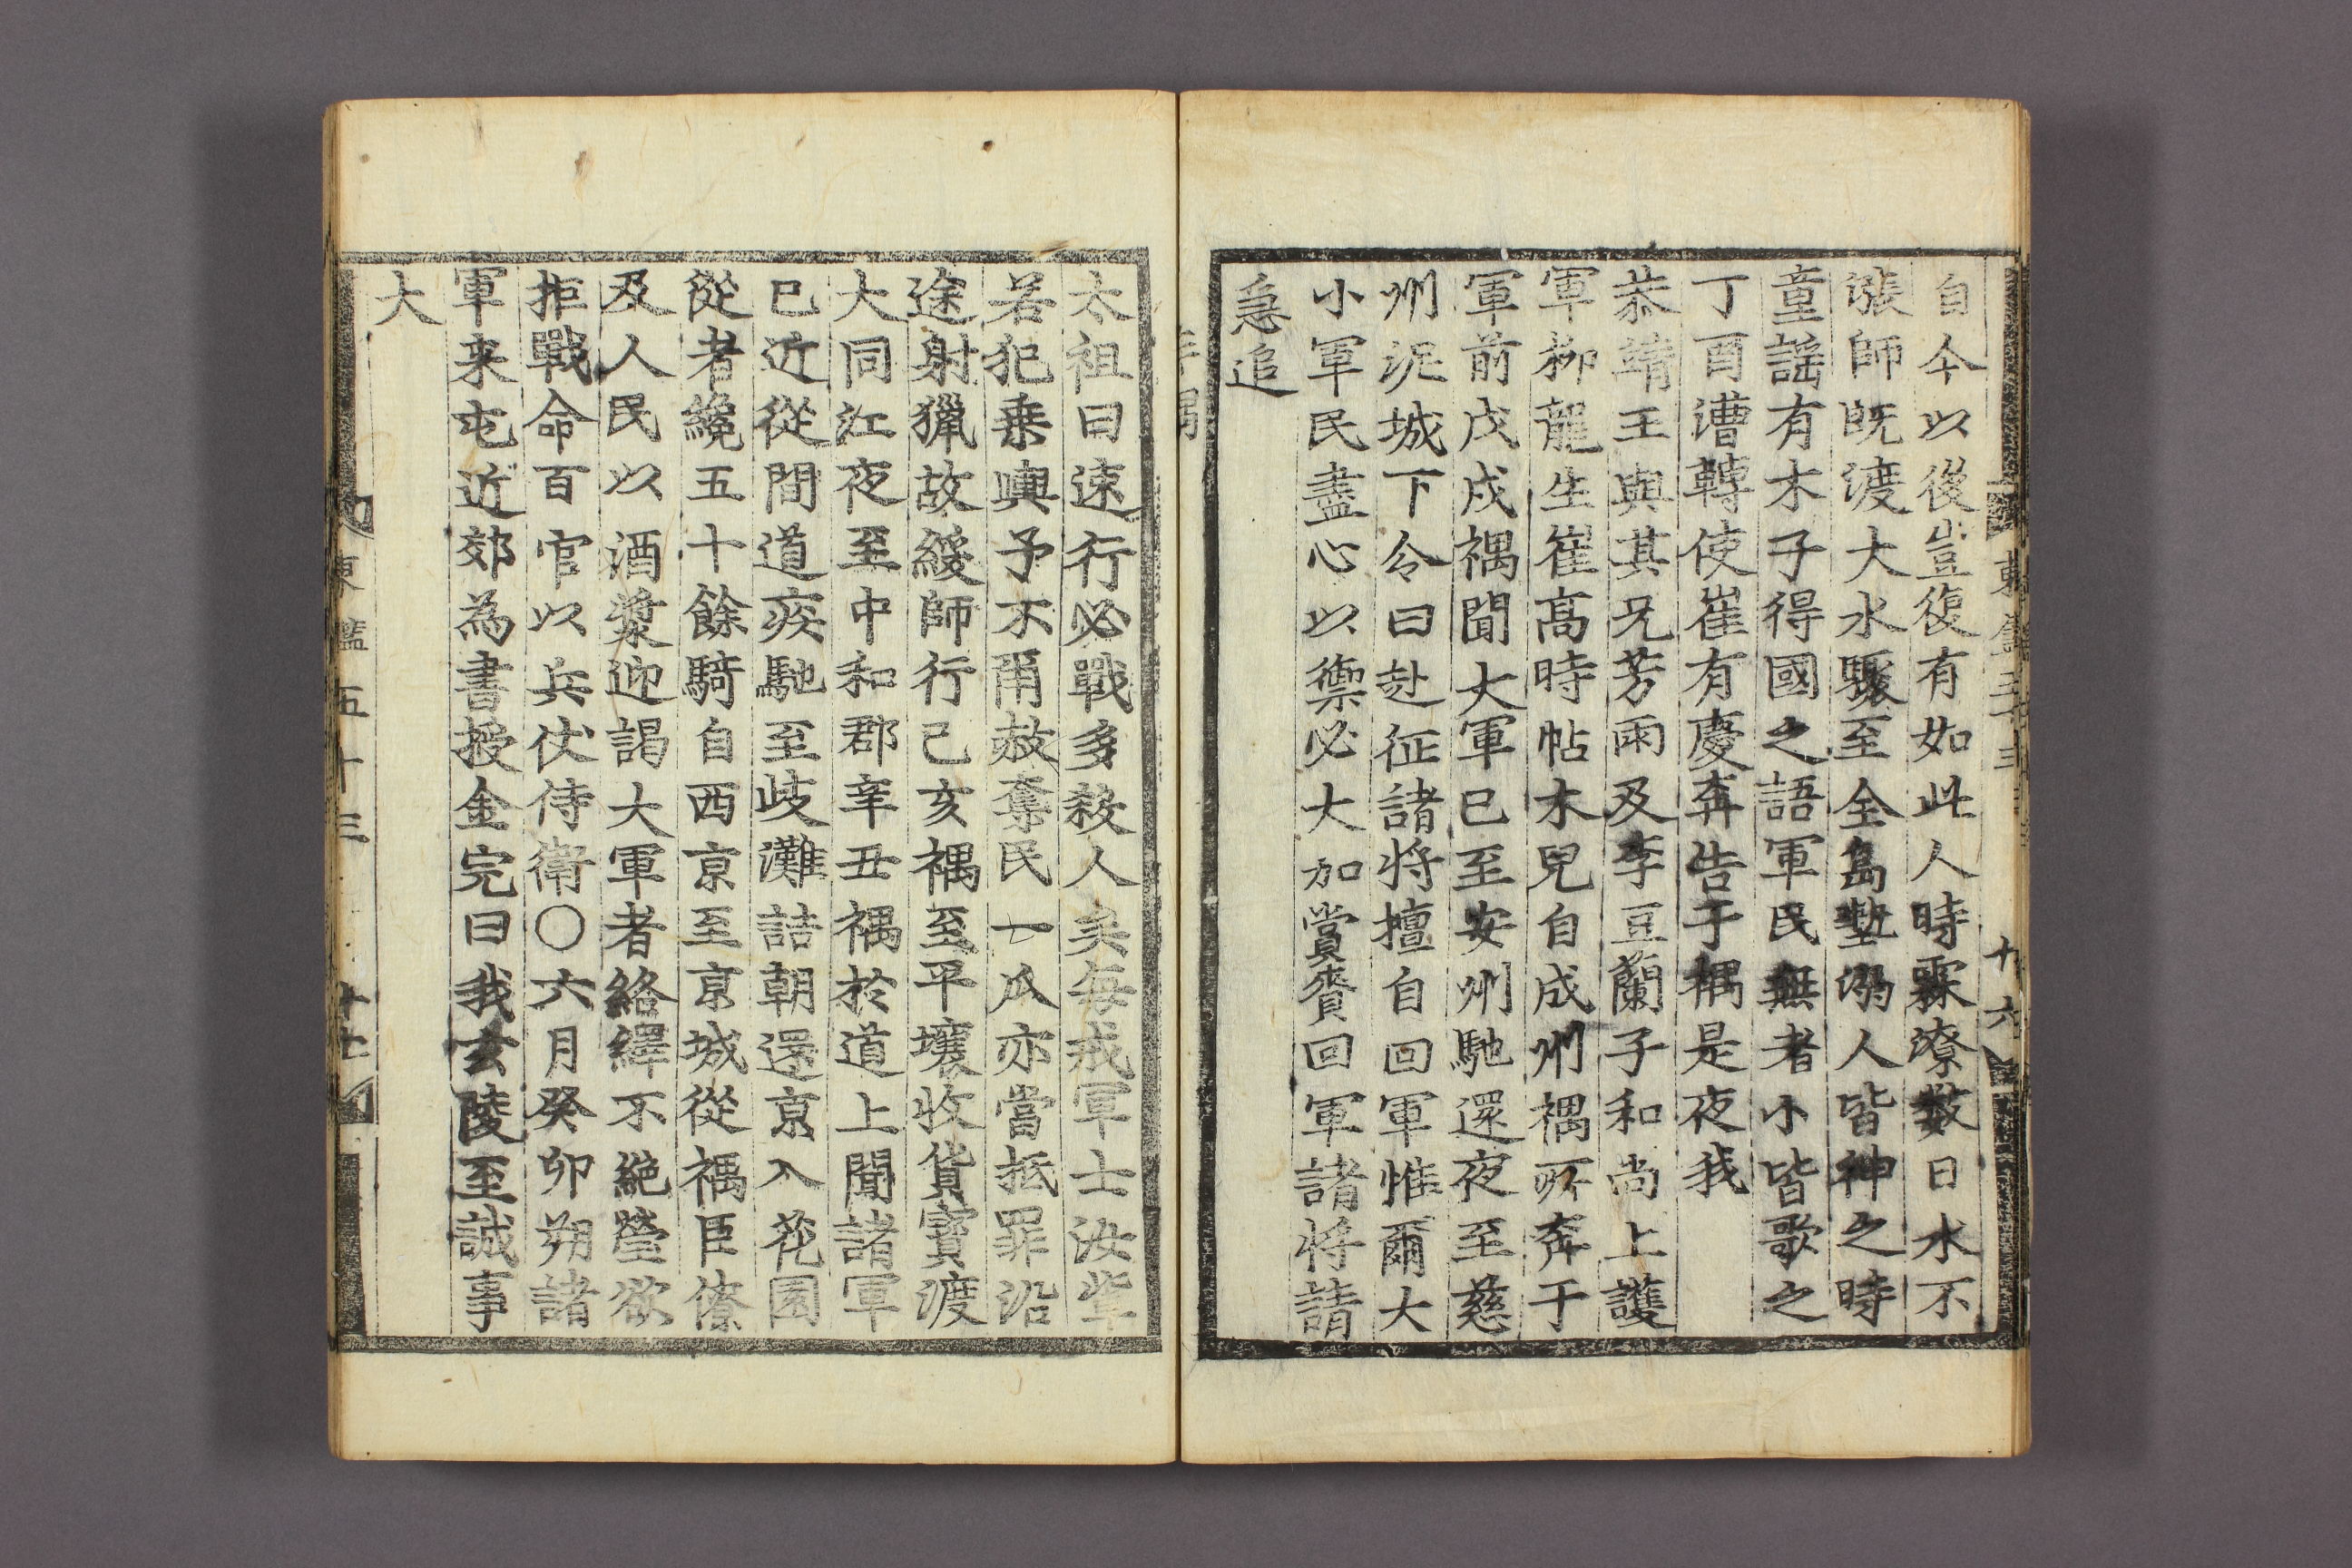 自今以後豈復有如此人時霖潦数日水不
漲師既渡大水驟至全島墊溺人皆神之時
童謡有木子得國之語軍民無者小皆歌之
丁酉漕轉使崔有慶奔告于禑是夜我
恭靖王與其兄芳雨及李豆蘭子和尚上護
軍柳龍生崔高時帖木兒自成州禑所奔于
軍前戊戌禑聞大軍已至安州馳還夜至慈
州泥城下令曰赴征諸將擅自回軍惟爾大
小軍民盡心以禦必大加賞賚回軍諸將請
急追
太祖曰速行必戰多殺人矣每戒軍士汝輩
若犯乗輿予不爾赦奪民一瓜亦當抵罪沿
途射獵故緩師行己亥禑至平壤收貨寳渡
大同江夜至中和郡辛丑禑於道上聞諸軍
已近從間道疾馳至歧灘詰朝還京入花園
從者纔五十餘騎自西京至京城從禑臣僚
及人民以酒漿迎謁大軍者絡繹不絶瑩欲
拒戰命百官以兵仗侍衛○六月癸卯朔諸
軍来屯近郊為書授金完曰我玄陵至誠事
大
東鑑五十三 十七